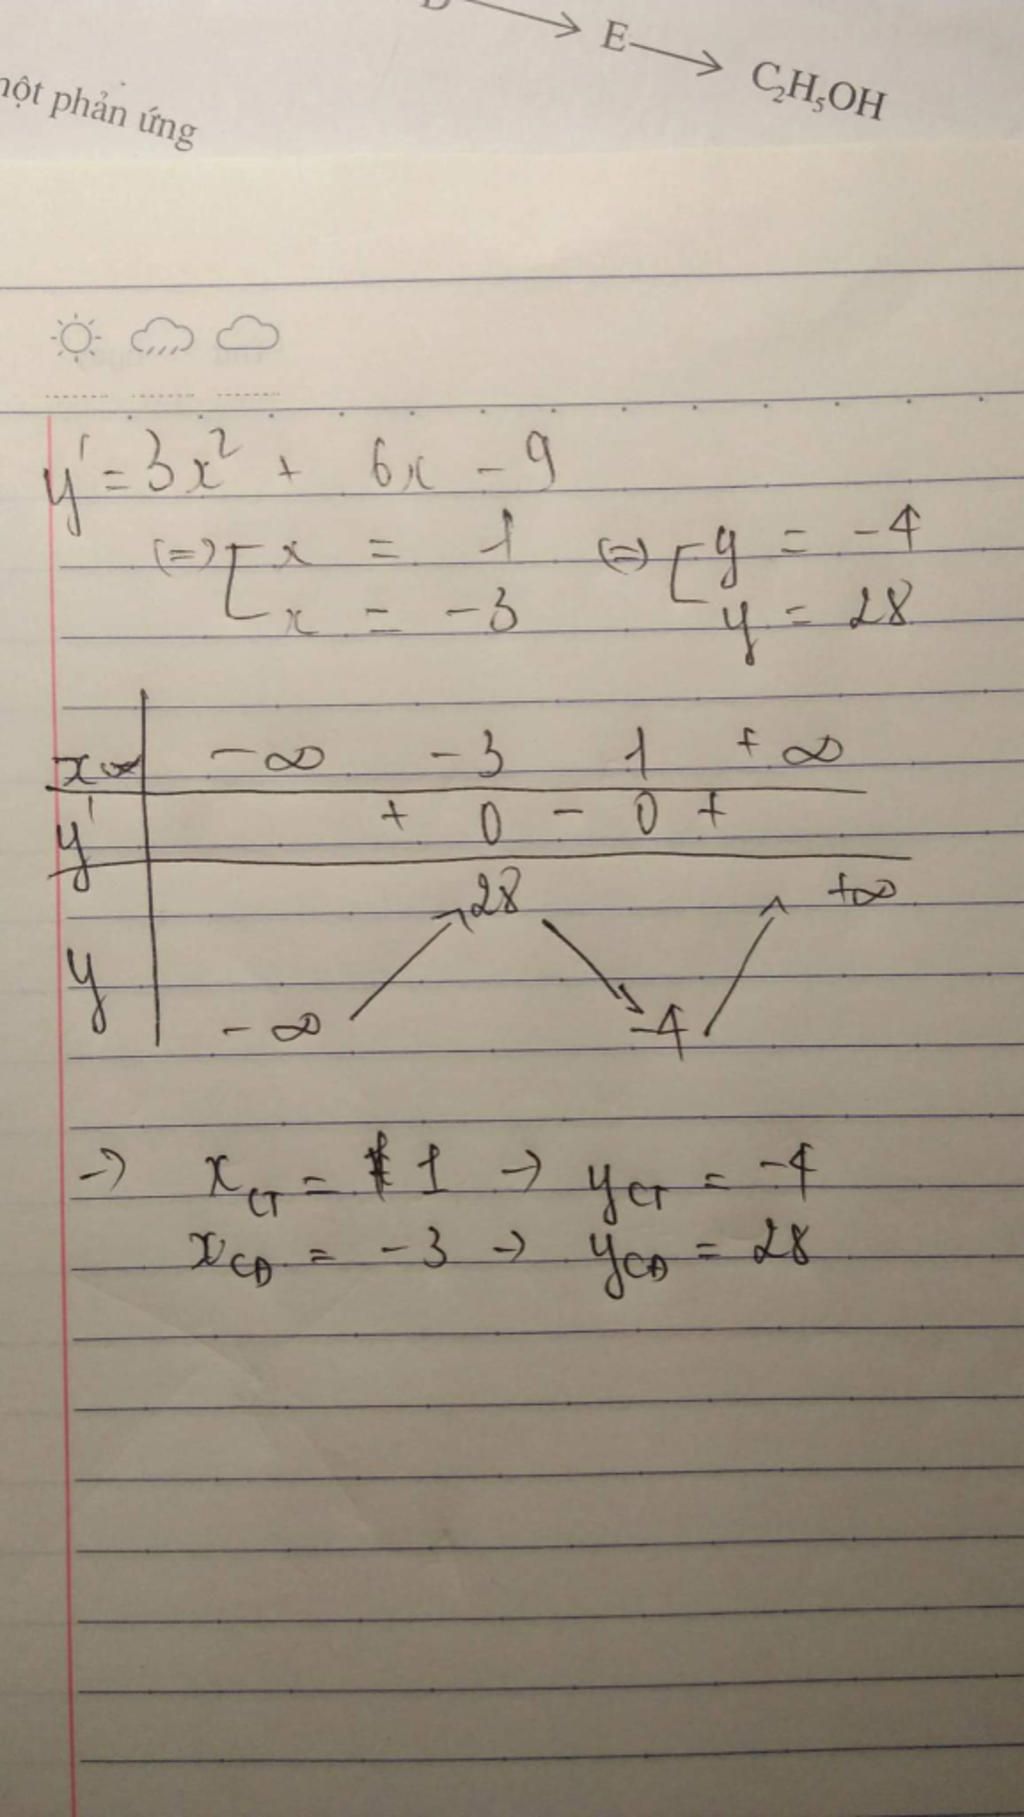 E → C₂H₅OH
một phản ứng
y' = 3x² + 6x - 9
(=) [ x = 1 (=) [ y = -4
x = -3 y = 28
x -∞ -3 1 +∞
y' + 0 - 0 +
28 +∞
y
-∞ -4
→ x_CT = 1 → y_CT = -4
x_CĐ = -3 → y_CĐ = 28